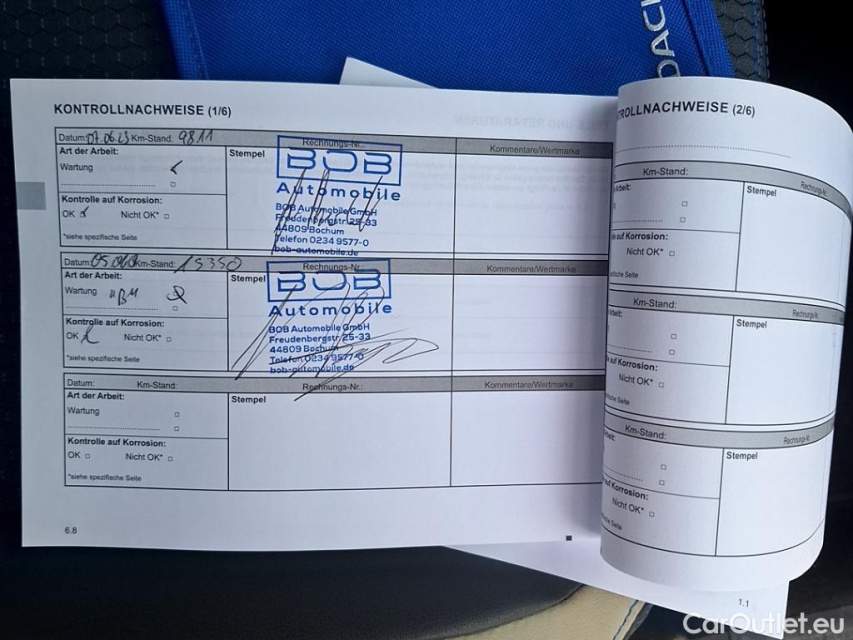 DACI
KONTROLLNACHWEISE (1/6)
Datum: 07.06.23 Km-Stand: 9811 Rechnungs-Nr.: Kommentare/Wertmarke
Art der Arbeit: Stempel
Wartung
BOB
Automobile
BOB Automobile GmbH
Freudenbergstr. 25-33
44809 Bochum
Telefon 0234 9577-0
bob-automobile.de
Kontrolle auf Korrosion:
OK Nicht OK*
*siehe spezifische Seite
Datum: Km-Stand: 15350 Rechnungs-Nr.: Kommentare/Wertmarke
Art der Arbeit: Stempel
Wartung
BOB
Automobile
BOB Automobile GmbH
Freudenbergstr. 25-33
44809 Bochum
Telefon 0234 9577-0
bob-automobile.de
Kontrolle auf Korrosion:
OK Nicht OK*
*siehe spezifische Seite
Datum: Km-Stand: Rechnungs-Nr.: Kommentare/Wertmarke
Art der Arbeit: Stempel
Wartung
Kontrolle auf Korrosion:
OK Nicht OK*
*siehe spezifische Seite
6.8
TROLLNACHWEISE (2/6)
Km-Stand: Rechnungs-Nr.
Arbeit: Stempel
auf Korrosion:
Nicht OK*
Seite
Km-Stand: Rechnungs-Nr.
Arbeit: Stempel
auf Korrosion:
Nicht OK*
Seite
Km-Stand: Rechnungs-Nr.
Arbeit: Stempel
auf Korrosion:
Nicht OK*
Seite
1.1
CarOutlet.eu